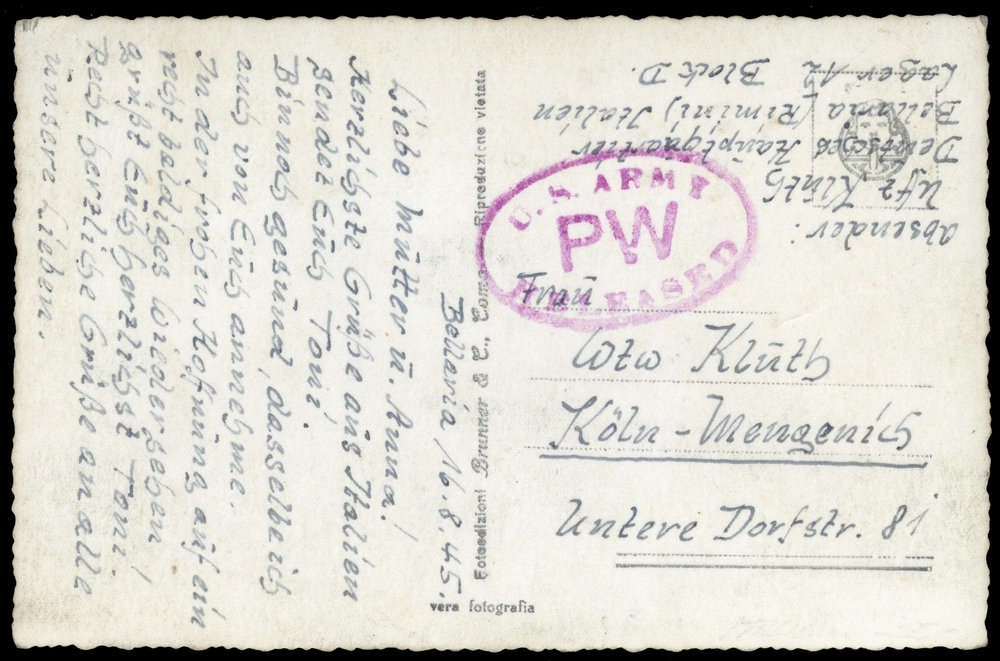 Bellaria 16.8.45.
Liebe Mutter u. Anna!
Herzlichste Grüße aus Italien
sendet Euch Toni
Bin noch gesund, dasselbe ich
auch von Euch annehme.
In der frohen Hofnung auf ein
recht baldiges Wiedersehen
grüßt Euch herzlichst Toni!
Recht herzliche Grüße an alle
unsere Lieben.
Fotoedizioni Brunner & C., Como Riproduzione vietata
vera fotografia
Absender:
Uffz Klüth
Deutsches Hauptquartier
Bellaria (Rimini) Italien
Lager A2 Block D.
U.S. ARMY
PW
RELEASED
Frau
Wtw Klüth
Köln-Mengenich
Untere Dorfstr. 81